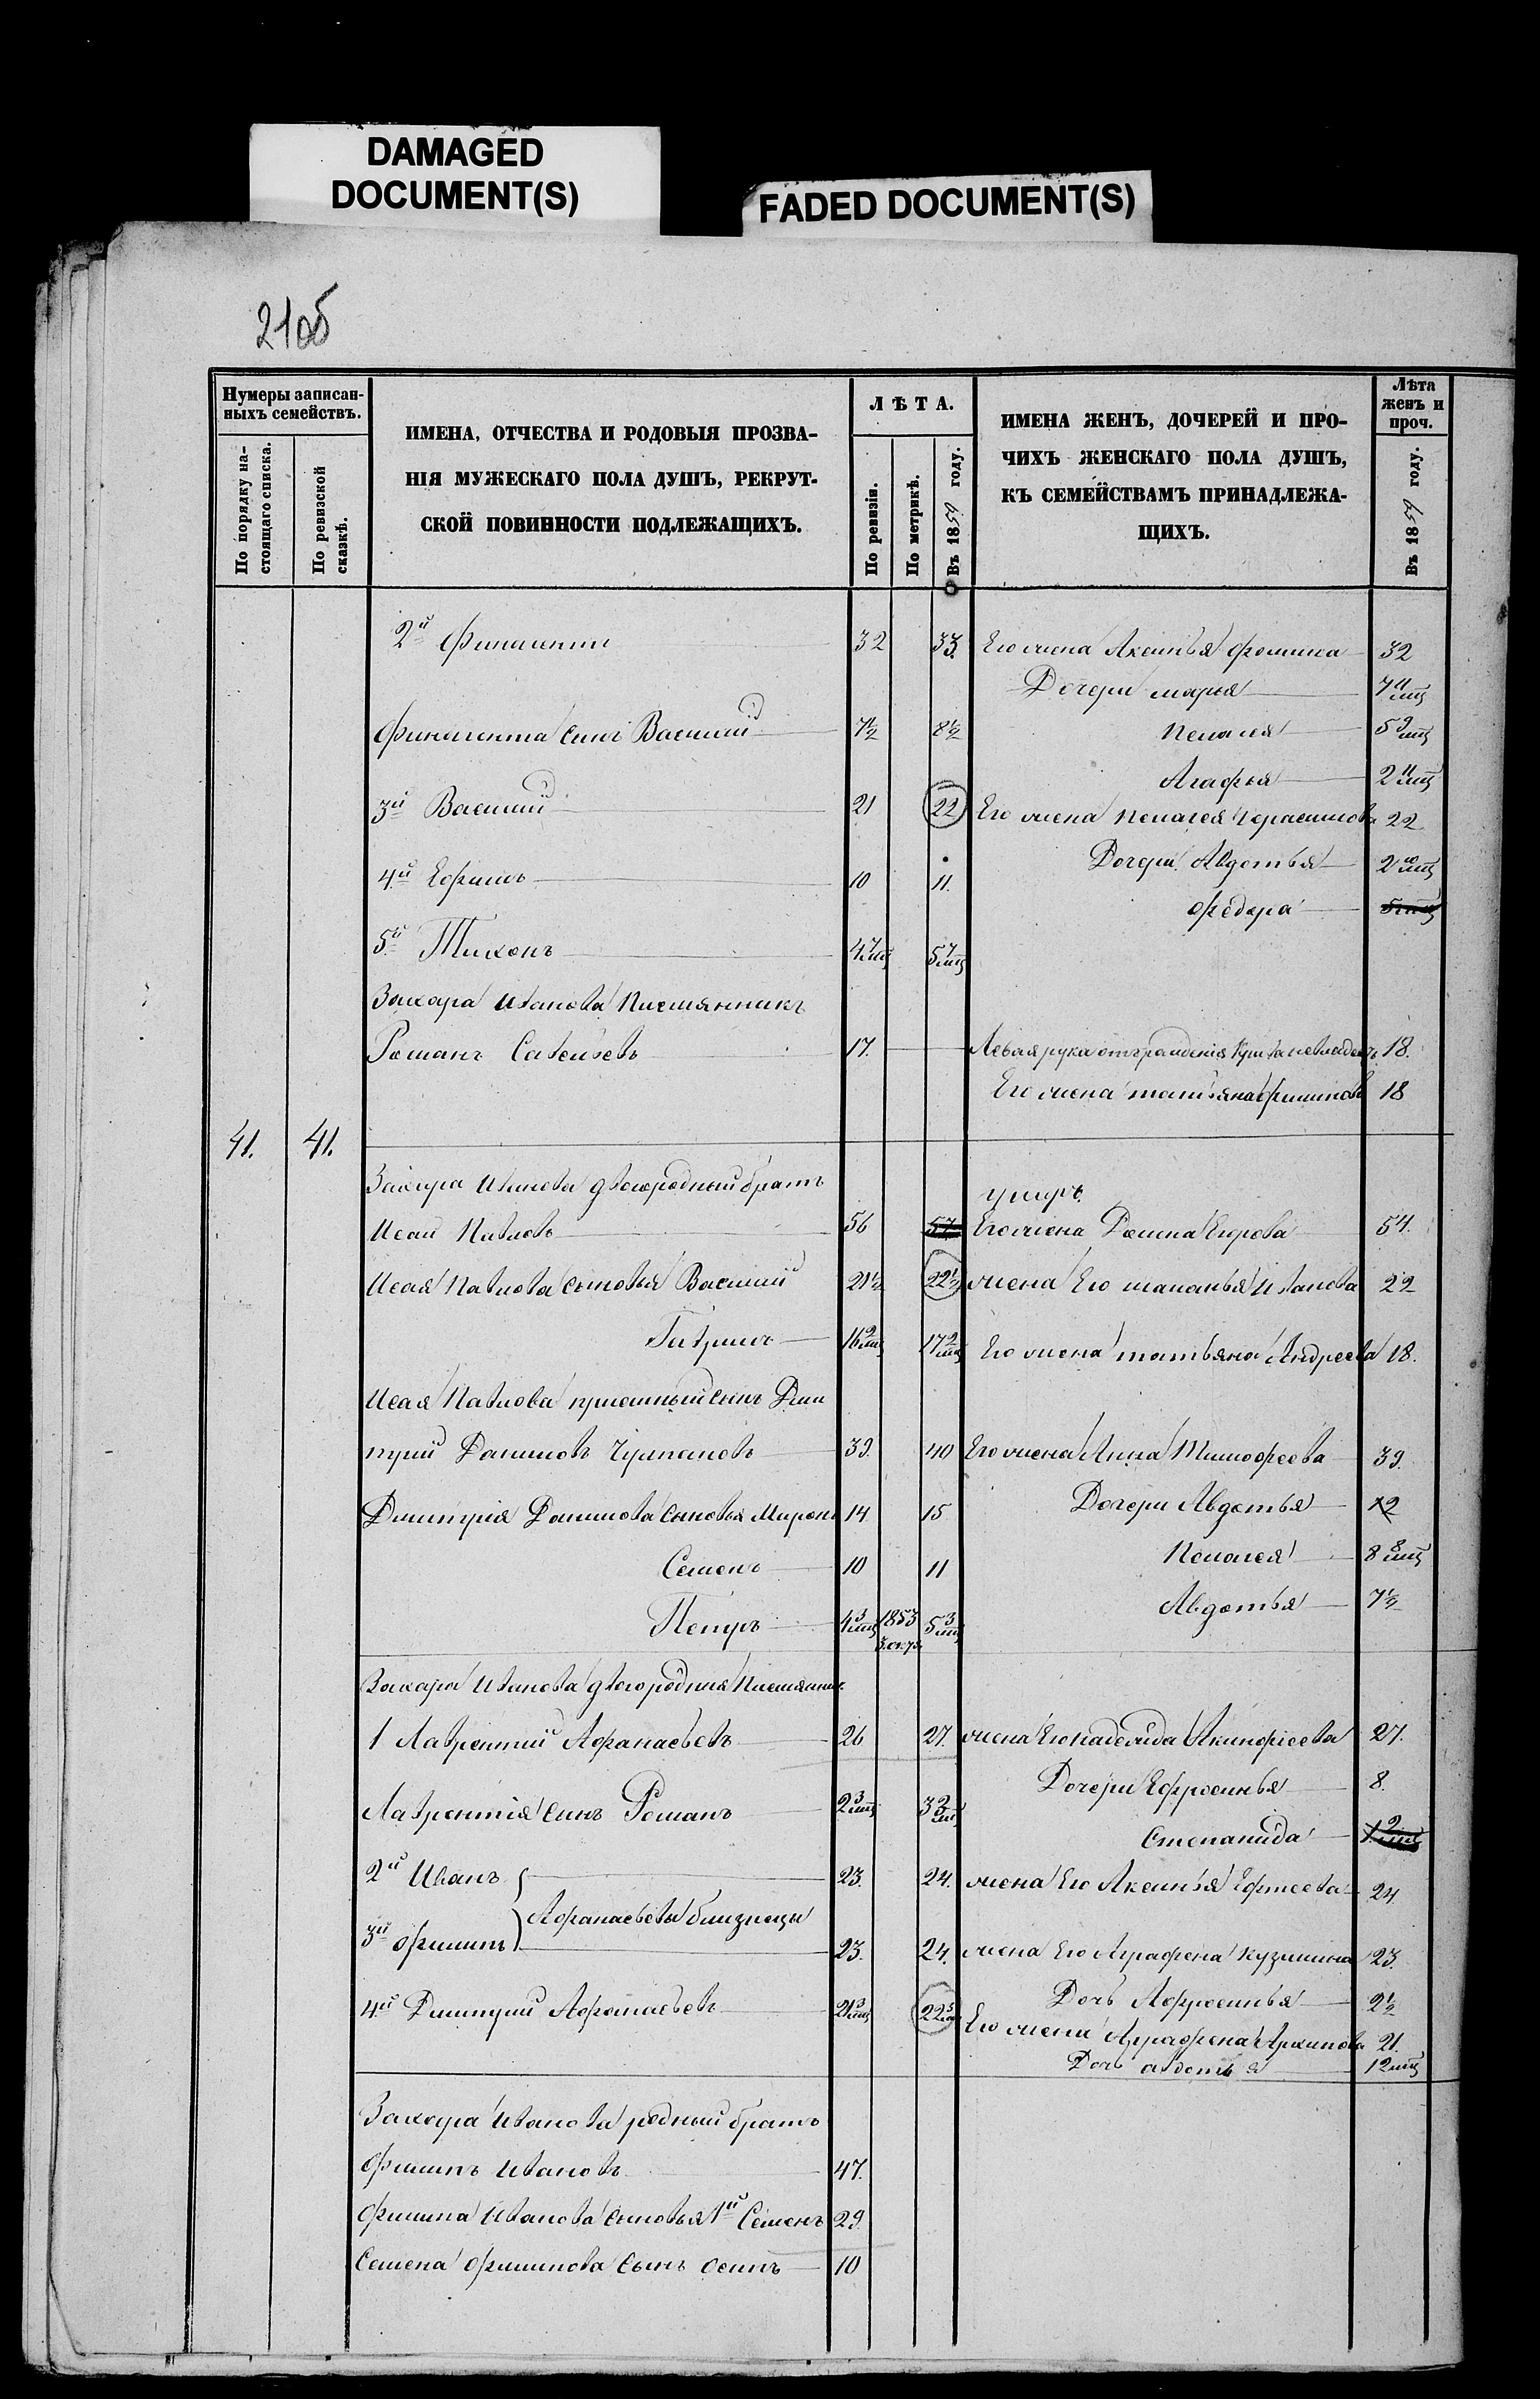 DAMAGED
DOCUMENT(S)
FADED DOCUMENT(S)
210б
Нумеры записан-
ныхъ семействъ.
По порядку на-
стоящаго списка.
По ревизской
сказкѣ.
ИМЕНА, ОТЧЕСТВА И РОДОВЫЯ ПРОЗВА-
НІЯ МУЖЕСКАГО ПОЛА ДУШЪ, РЕКРУТ-
СКОЙ ПОВИННОСТИ ПОДЛЕЖАЩИХЪ.
ЛѢТА.
По ревизіи.
По метрикѣ.
Въ 1859 году.
ИМЕНА ЖЕНЪ, ДОЧЕРЕЙ И ПРО-
ЧИХЪ ЖЕНСКАГО ПОЛА ДУШЪ,
КЪ СЕМЕЙСТВАМЪ ПРИНАДЛЕЖА-
ЩИХЪ.
Лѣта
женъ и
проч.
Въ 1859 году.
2й 32 33. Его жена Аксинья Фомина 32
Дочери Марья 7 11 мц
сынъ Василий 7½ 8½ Пелагея 5 9 мц
Агафья 2 11 мц
3й Василий 21 22 Его жена Пелагея Герасимова 22
4й Ефимъ 10 11. Дочери Авдотья 2 10 мц
Федора
5й Тихонъ 4 7 мц 5 7 мц
Захара Иванова Племянникъ
Романъ Савельевъ 17. Левая рука отъ рождения 18.
Его жена Татьяна Филипова 18
41. 41.
Захара Иванова двоюродный братъ умеръ.
Исай Павловъ 56 57 Его жена Домна Егорова 54.
Исая Павлова сыновья Василий 21½ 22½ жена Его Маланья Иванова 22
Гаврилъ 16 2 мц 17 2 мц Его жена Татьяна Андреева 18.
Исая Павлова приемный сынъ Дми
трий Даниловъ 39. 40 Его жена Анна Тимофеева 39.
Дмитрия Данилова сыновья Миронъ 14 15 Дочери Авдотья 12
Семенъ 10 11 Пелагея 8 8 мц
Петръ 4 3 мц 1853 5 3 мц Авдотья 7½
Захара Иванова двоюродныя Племянники
1 Лаврентий Афанасьевъ 26 27. жена Его Надежда Акинфиева 27.
Дочери Ефросинья 8.
Лаврентия сынъ Романъ 2 3 мц 3 3 мц Степанида
2й Иванъ 23. 24. жена Его Аксинья Ефтеева 24
Афанасьевы близнецы
3й Филипъ 23. 24. жена Его Аграфена Кузмина 23.
4й Дмитрий Афанасьевъ 21 3 мц 22 Дочь Афросинья 2½
Его жена Аграфена Архипова 21.
Дочь Авдотья 12 мц
Захара Иванова родный братъ
Филипъ Ивановъ 47.
Филипа Иванова сыновья 1й Семенъ 29.
Семена Филипова сынъ Осипъ 10